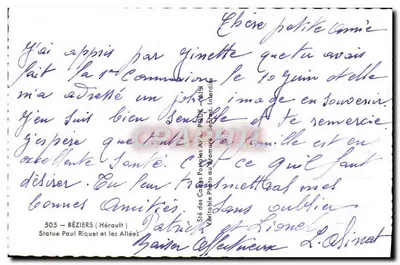 Chère petite amie
J'ai appris par Ginette que tu avais
fait la 1re Communion le 10 juin et elle
m'a adressé un joli image en souvenir
j'en suis bien sensible et te remercie
j'espère que toute la famille est en
excellente santé c'est ce qu'il faut
désirer. Tu leur transmettras mes
bonnes Amitiés, sans oublier
Patrick et Lionel
Baiser affectueux
505 — BÉZIERS (Hérault)
Statue Paul Riquet et les Allées